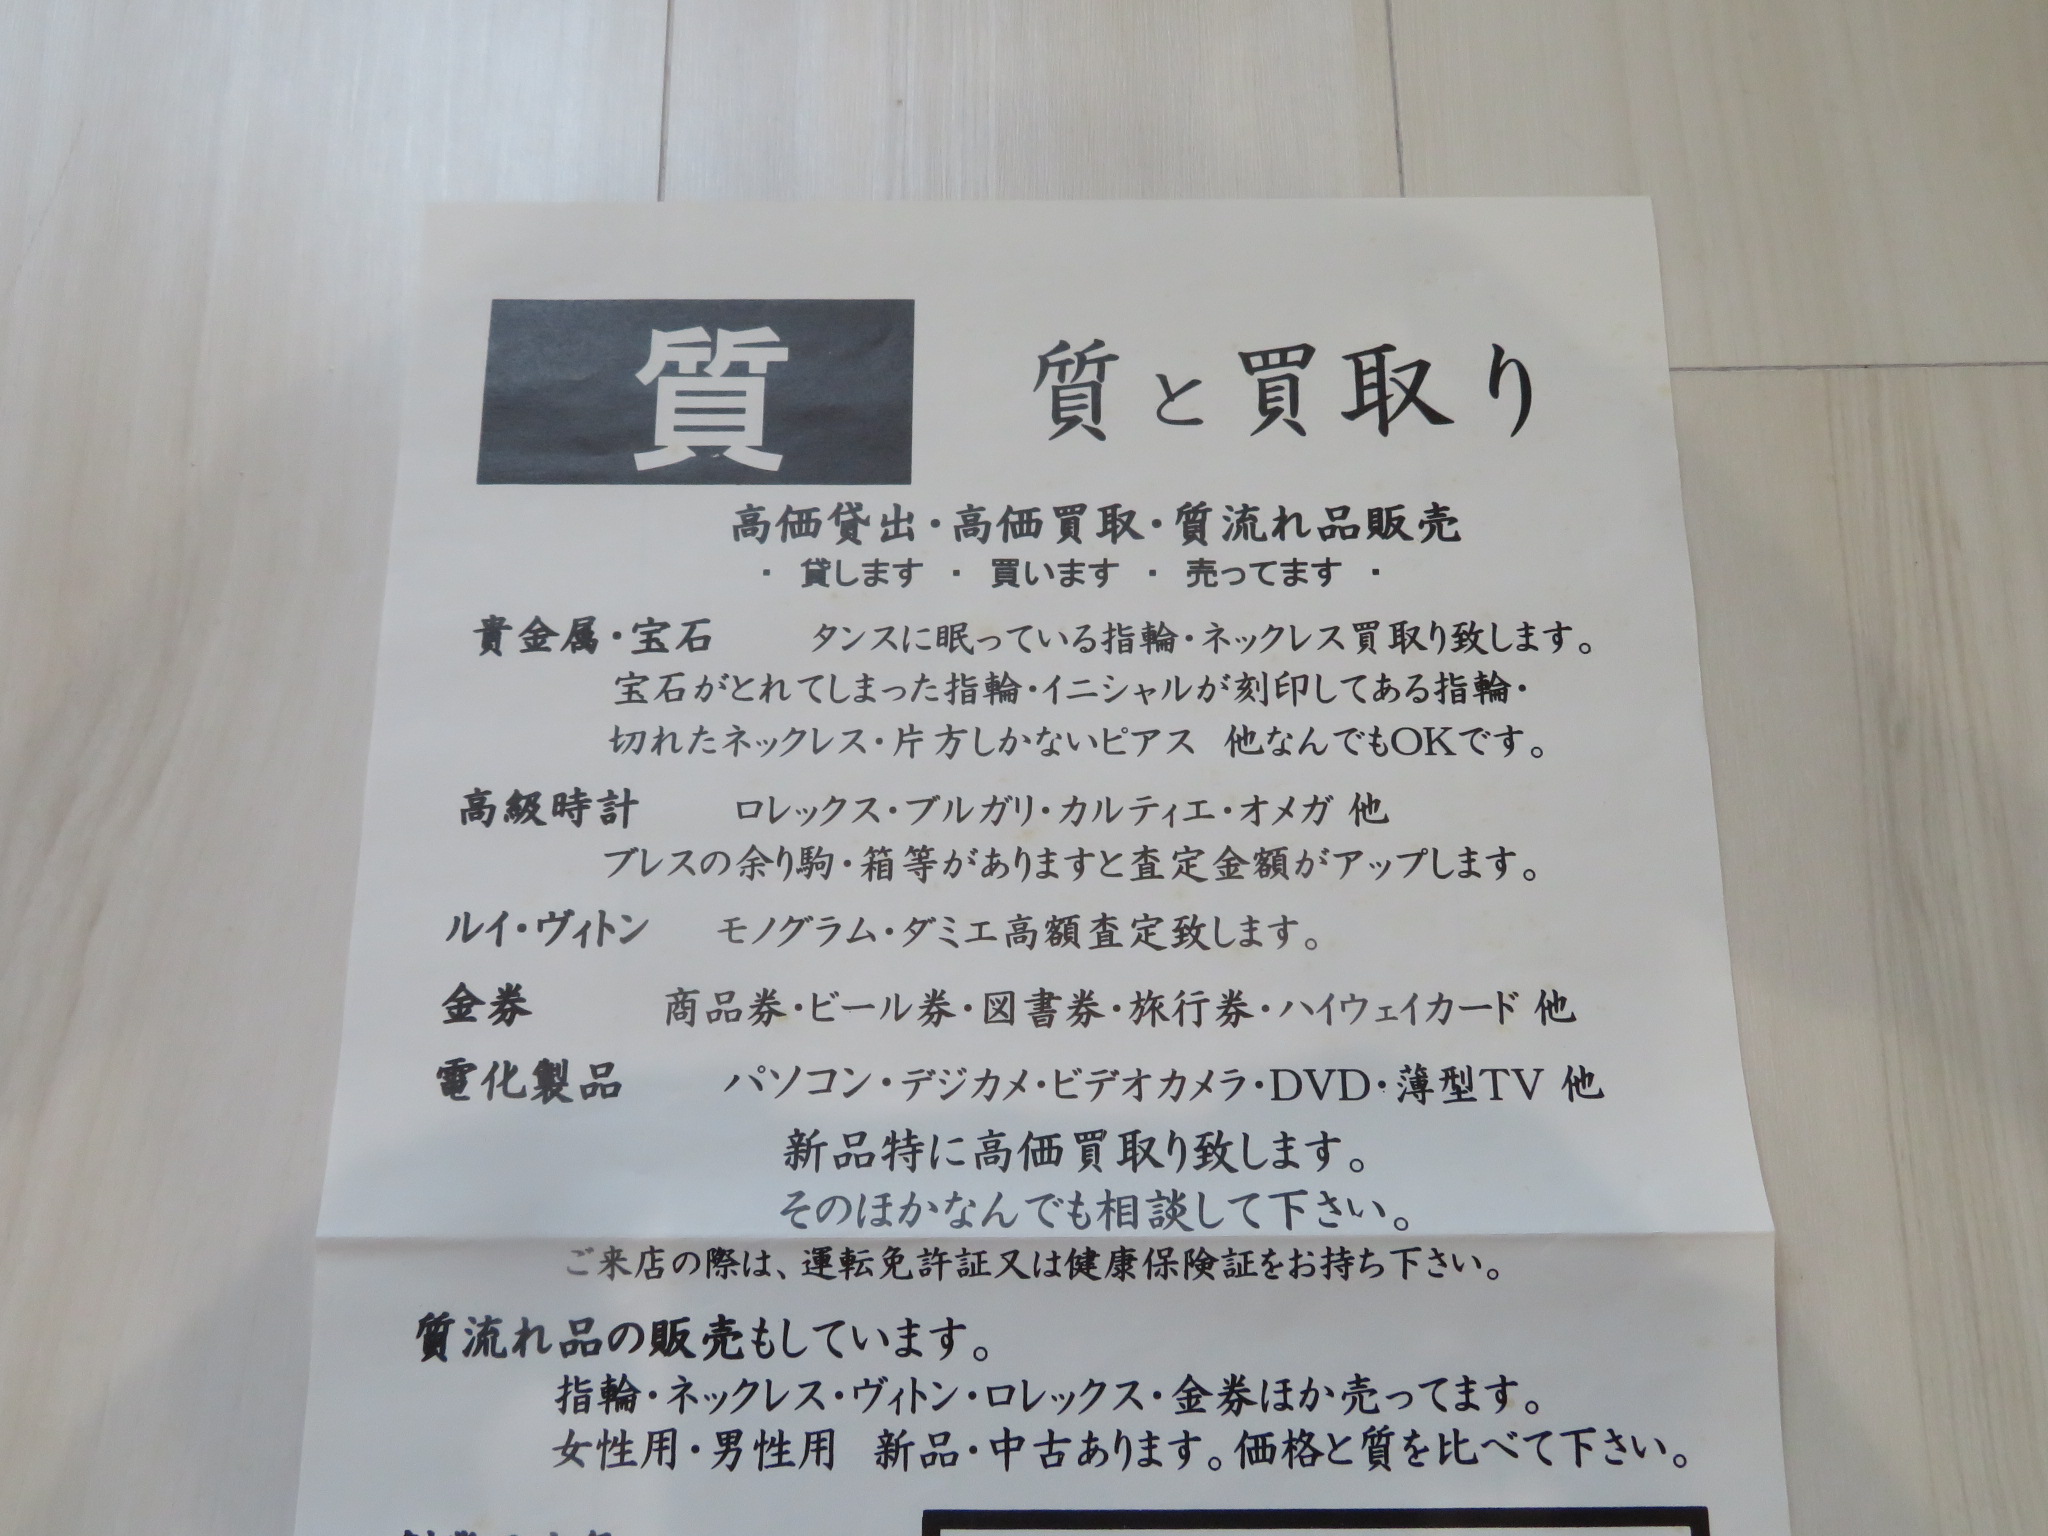 質
質と買取り
高価貸出・高価買取・質流れ品販売
・ 貸します ・ 買います ・ 売ってます ・
貴金属・宝石 タンスに眠っている指輪・ネックレス買取り致します。
宝石がとれてしまった指輪・イニシャルが刻印してある指輪・
切れたネックレス・片方しかないピアス 他なんでもOKです。
高級時計 ロレックス・ブルガリ・カルティエ・オメガ 他
ブレスの余り駒・箱等がありますと査定金額がアップします。
ルイ・ヴィトン モノグラム・ダミエ高額査定致します。
金券 商品券・ビール券・図書券・旅行券・ハイウェイカード 他
電化製品 パソコン・デジカメ・ビデオカメラ・DVD・薄型TV 他
新品特に高価買取り致します。
そのほかなんでも相談して下さい。
ご来店の際は、運転免許証又は健康保険証をお持ち下さい。
質流れ品の販売もしています。
指輪・ネックレス・ヴィトン・ロレックス・金券ほか売ってます。
女性用・男性用 新品・中古あります。価格と質を比べて下さい。